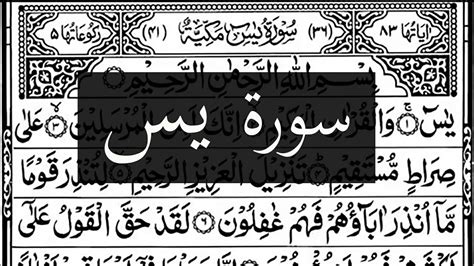 اٰيَاتُهَا ٨٣ (٣٦) سُوْرَةُ يٰسٓ مَكِّيَّةٌ (٤١) رُكُوْعَاتُهَا ٥
بِسْمِ اللهِ الرَّحْمٰنِ الرَّحِيْمِ
سورة يس
يٰسٓ ۝١ وَالْقُرْاٰنِ اِنَّكَ لَمِنَ الْمُرْسَلِيْنَ ۝٣ عَلٰى
صِرَاطٍ مُّسْتَقِيْمٍ ۝٤ تَنْزِيْلَ الْعَزِيْزِ الرَّحِيْمِ ۝٥ لِتُنْذِرَ قَوْمًا
مَّآ اُنْذِرَ اٰبَآؤُهُمْ فَهُمْ غٰفِلُوْنَ ۝٦ لَقَدْ حَقَّ الْقَوْلُ عَلٰٓى